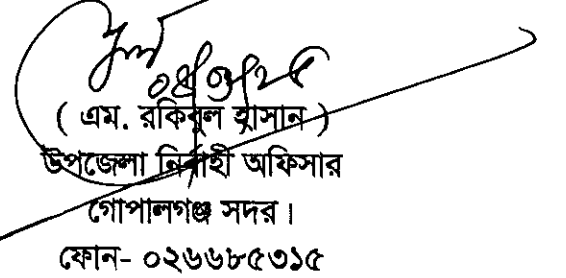 ০৪/০৩/২৫
( এম. রকিবুল হাসান )
উপজেলা নির্বাহী অফিসার
গোপালগঞ্জ সদর।
ফোন- ০২৬৬৮৫৩১৫